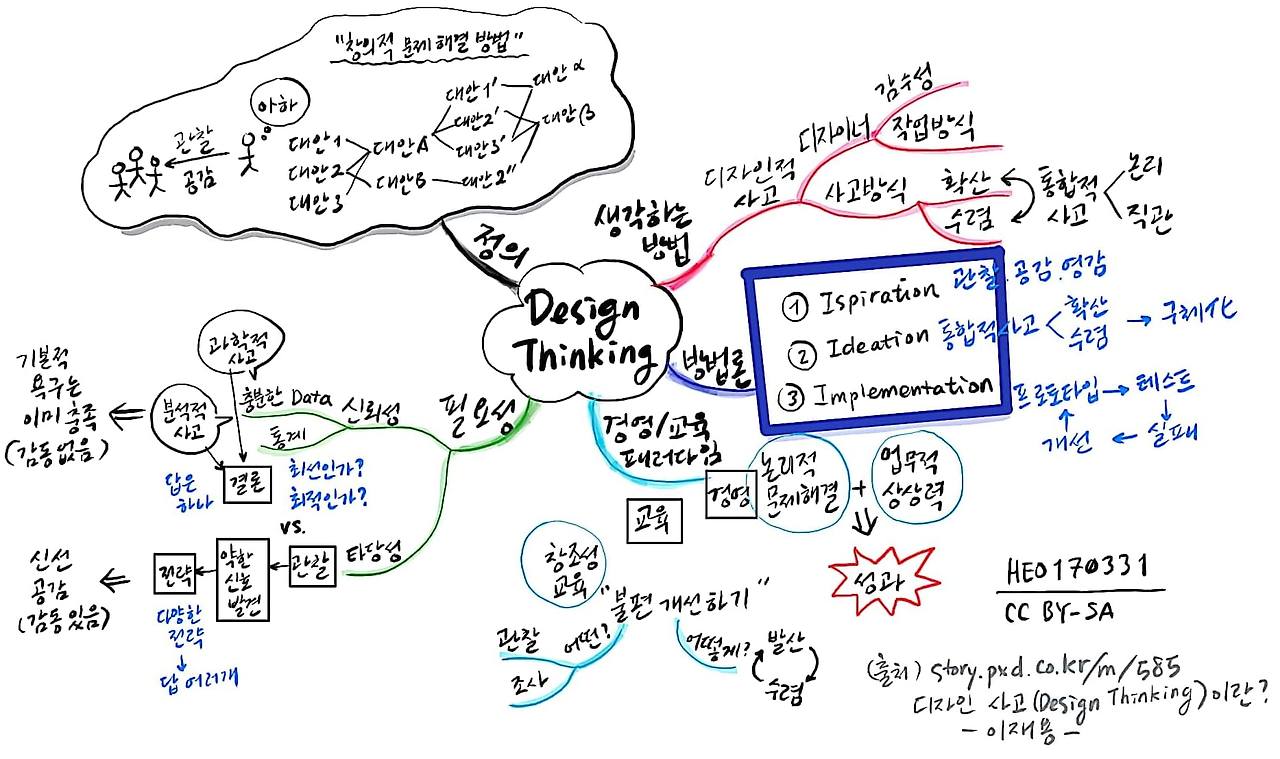 "창의적 문제해결 방법"
아하
관찰
공감
대안1
대안2
대안3
대안A
대안B
대안1'
대안2'
대안3'
대안2"
대안α
대안β
정의
Design
Thinking
생각하는
방법
디자인적
사고
디자이너
감수성
작업방식
사고방식
확산
수렴
통합적
사고
논리
직관
방법론
① Ispiration 관찰.공감.영감
② Ideation 통합적사고
확산
수렴
→ 구체화
③ Implementation
프로토타입 → 테스트
개선 ← 실패
경영/교육
패러다임
경영
논리적
문제해결
+
업무적
상상력
성과
교육
창조성
교육
"불편 개선하기"
어떤?
관찰
조사
어떻게?
발산
수렴
필요성
신뢰성
충분한 Data
통계
과학적
사고
분석적
사고
결론
답은
하나
최선인가?
최적인가?
기본적
욕구는
이미 충족
(감동없음)
vs.
타당성
관찰
약한
신호
발견
전략
다양한
전략
↓
답 여러개
신선
공감
(감동있음)
HEO170331
CC BY-SA
(출처) story.pxd.co.kr/m/585
디자인 사고(Design Thinking)이란?
- 이재용 -